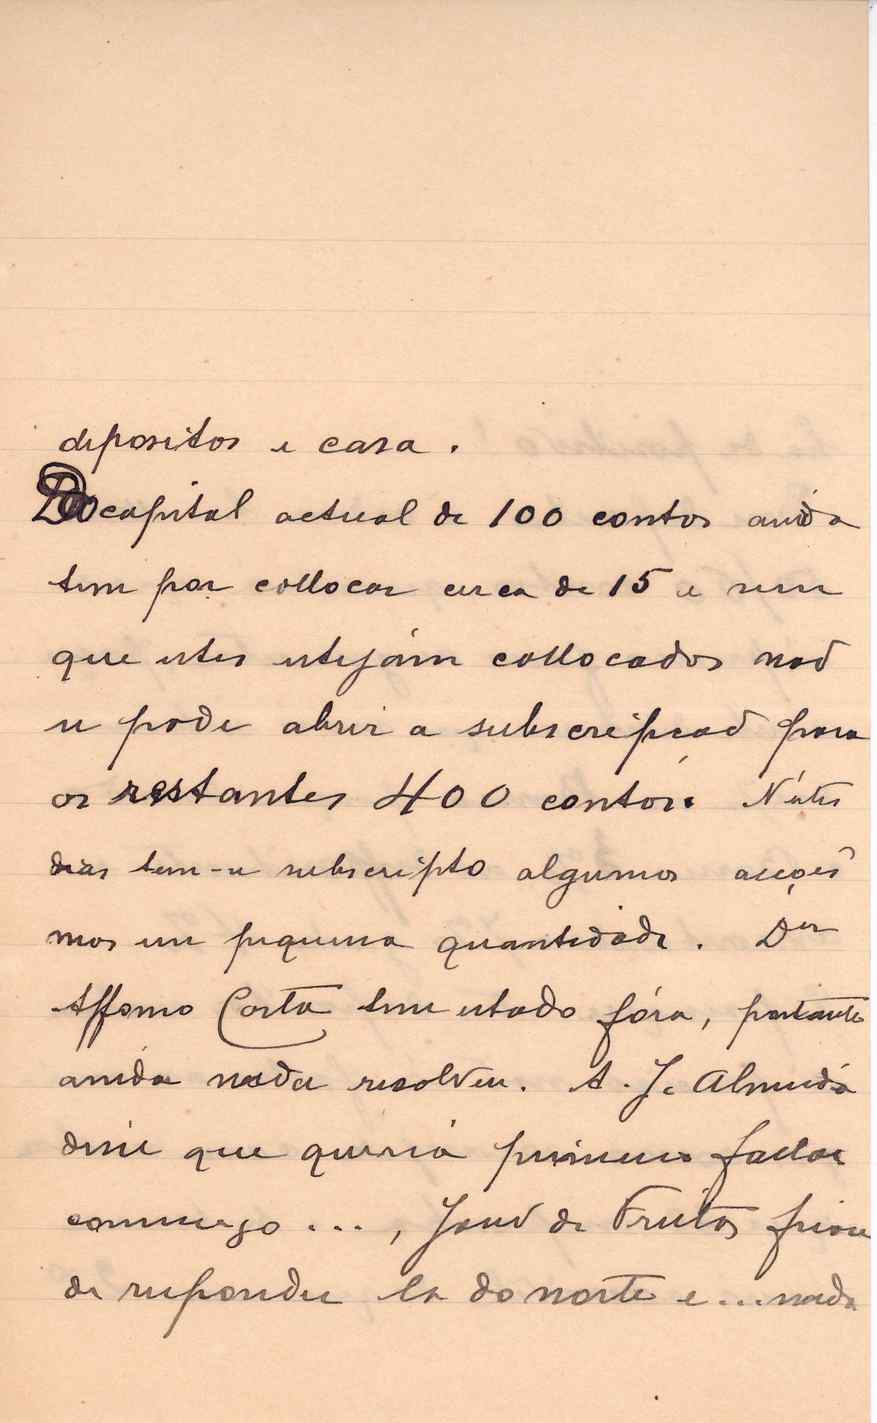 depositos e casa.
Do capital actual de 100 contos ainda
tem por collocar cerca de 15 e sem
que estes estejám collocados naõ
se pode abrir a subscripçaõ para
os restantes 400 contos. N'estes
dias tem-se subscripto algumas acções
mas em pequena quantidade. Der
Affonso Costa tem estado fóra, portanto
ainda nada resolveu. A. J. Almeida
disse que queria primeiro fallar
commigo ..., João de Freitas ficou
de responder la do norte e ... nada